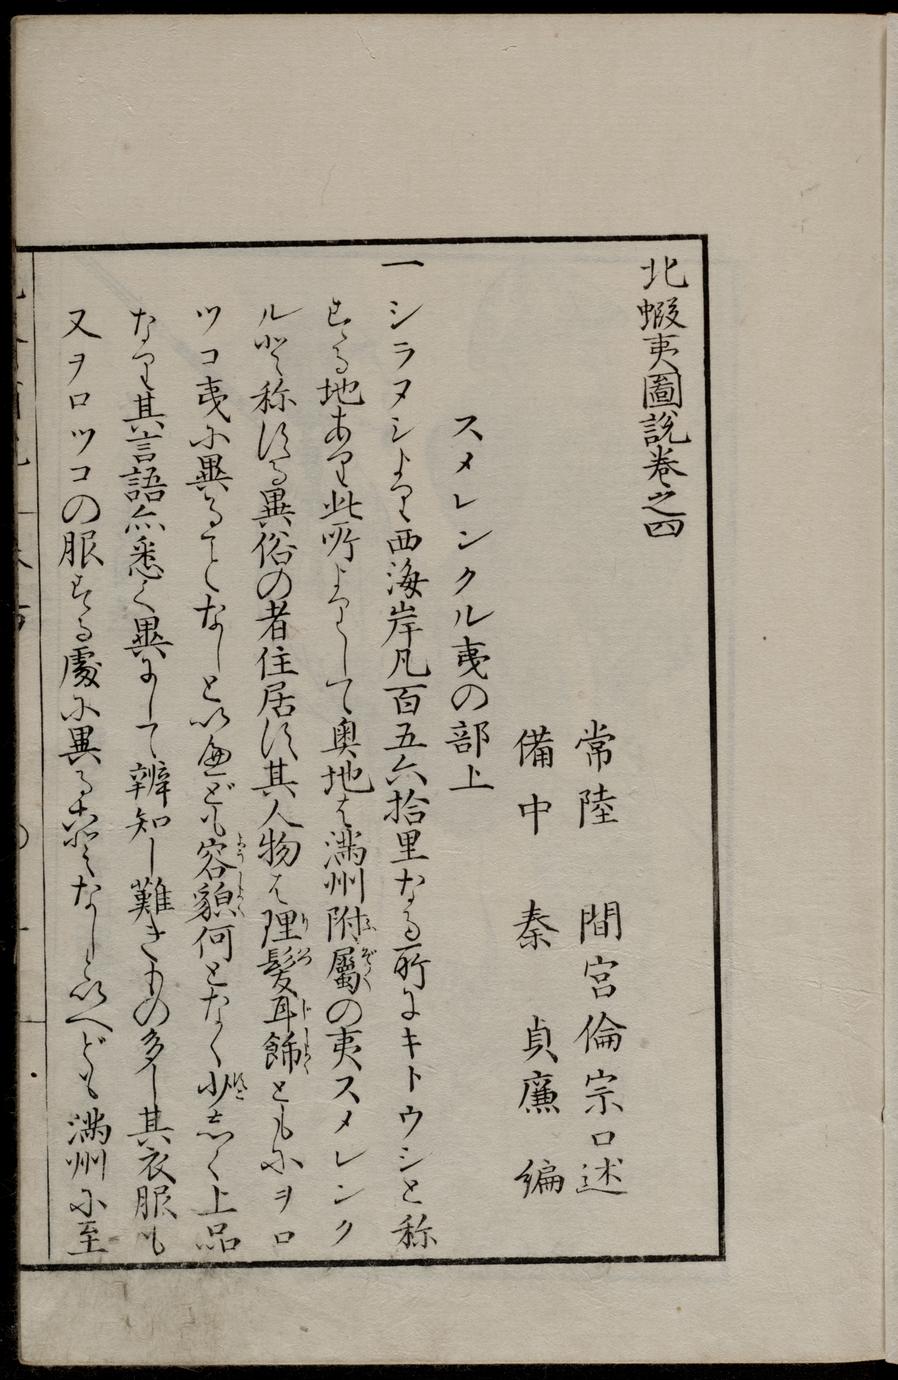 北蝦夷圖説巻之四
常陸 間宮倫宗口述
備中 秦 貞廉 編
スメレンクル夷の部上
一シラヌシより西海岸凡百五六拾里なる所にキトウシと称
する地あり此所よりして奥地は満州附屬の夷スメレンク
ル と称する異俗の者住居す其人物は理髪耳飾ともにヲロ
ツコ夷に異ることなしといへども容貌何となく少しく上品
なり其言語悉く異にして辨知し難きもの多し其衣服も
又ヲロツコの服する處に異ることなしといへども満州に至